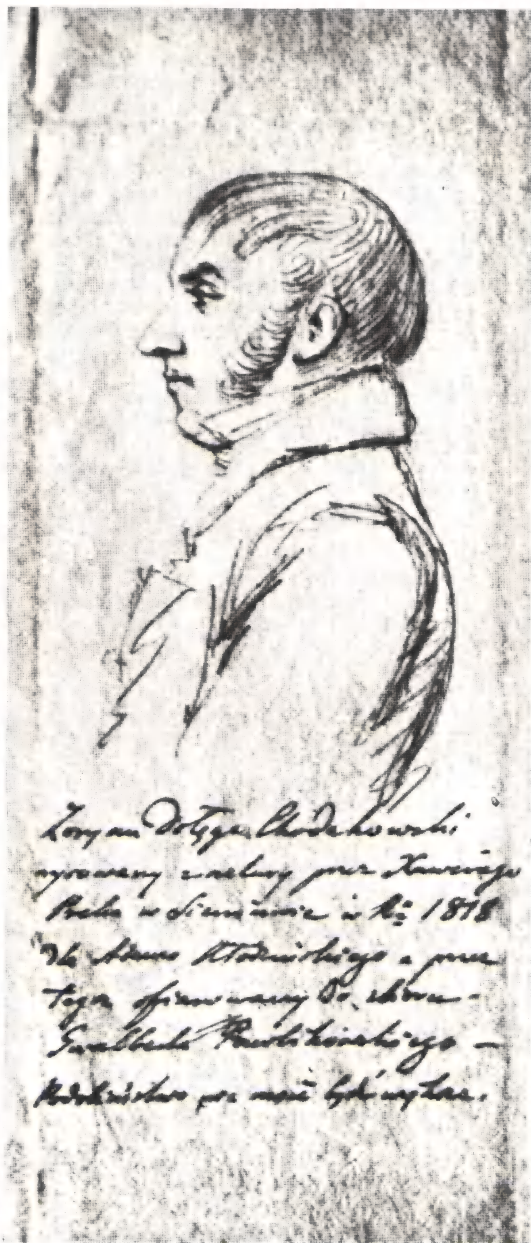 Zoryan Dołęga Chodakowski
rysowany z natury przez Xawerego
Preka w Sieniawie w Rż 1818
dla Adama Kłodzińskiego a przez
tegoż ofiarowany do zbioru
Gwalberta Pawlikowskiego —
Podobieństwo